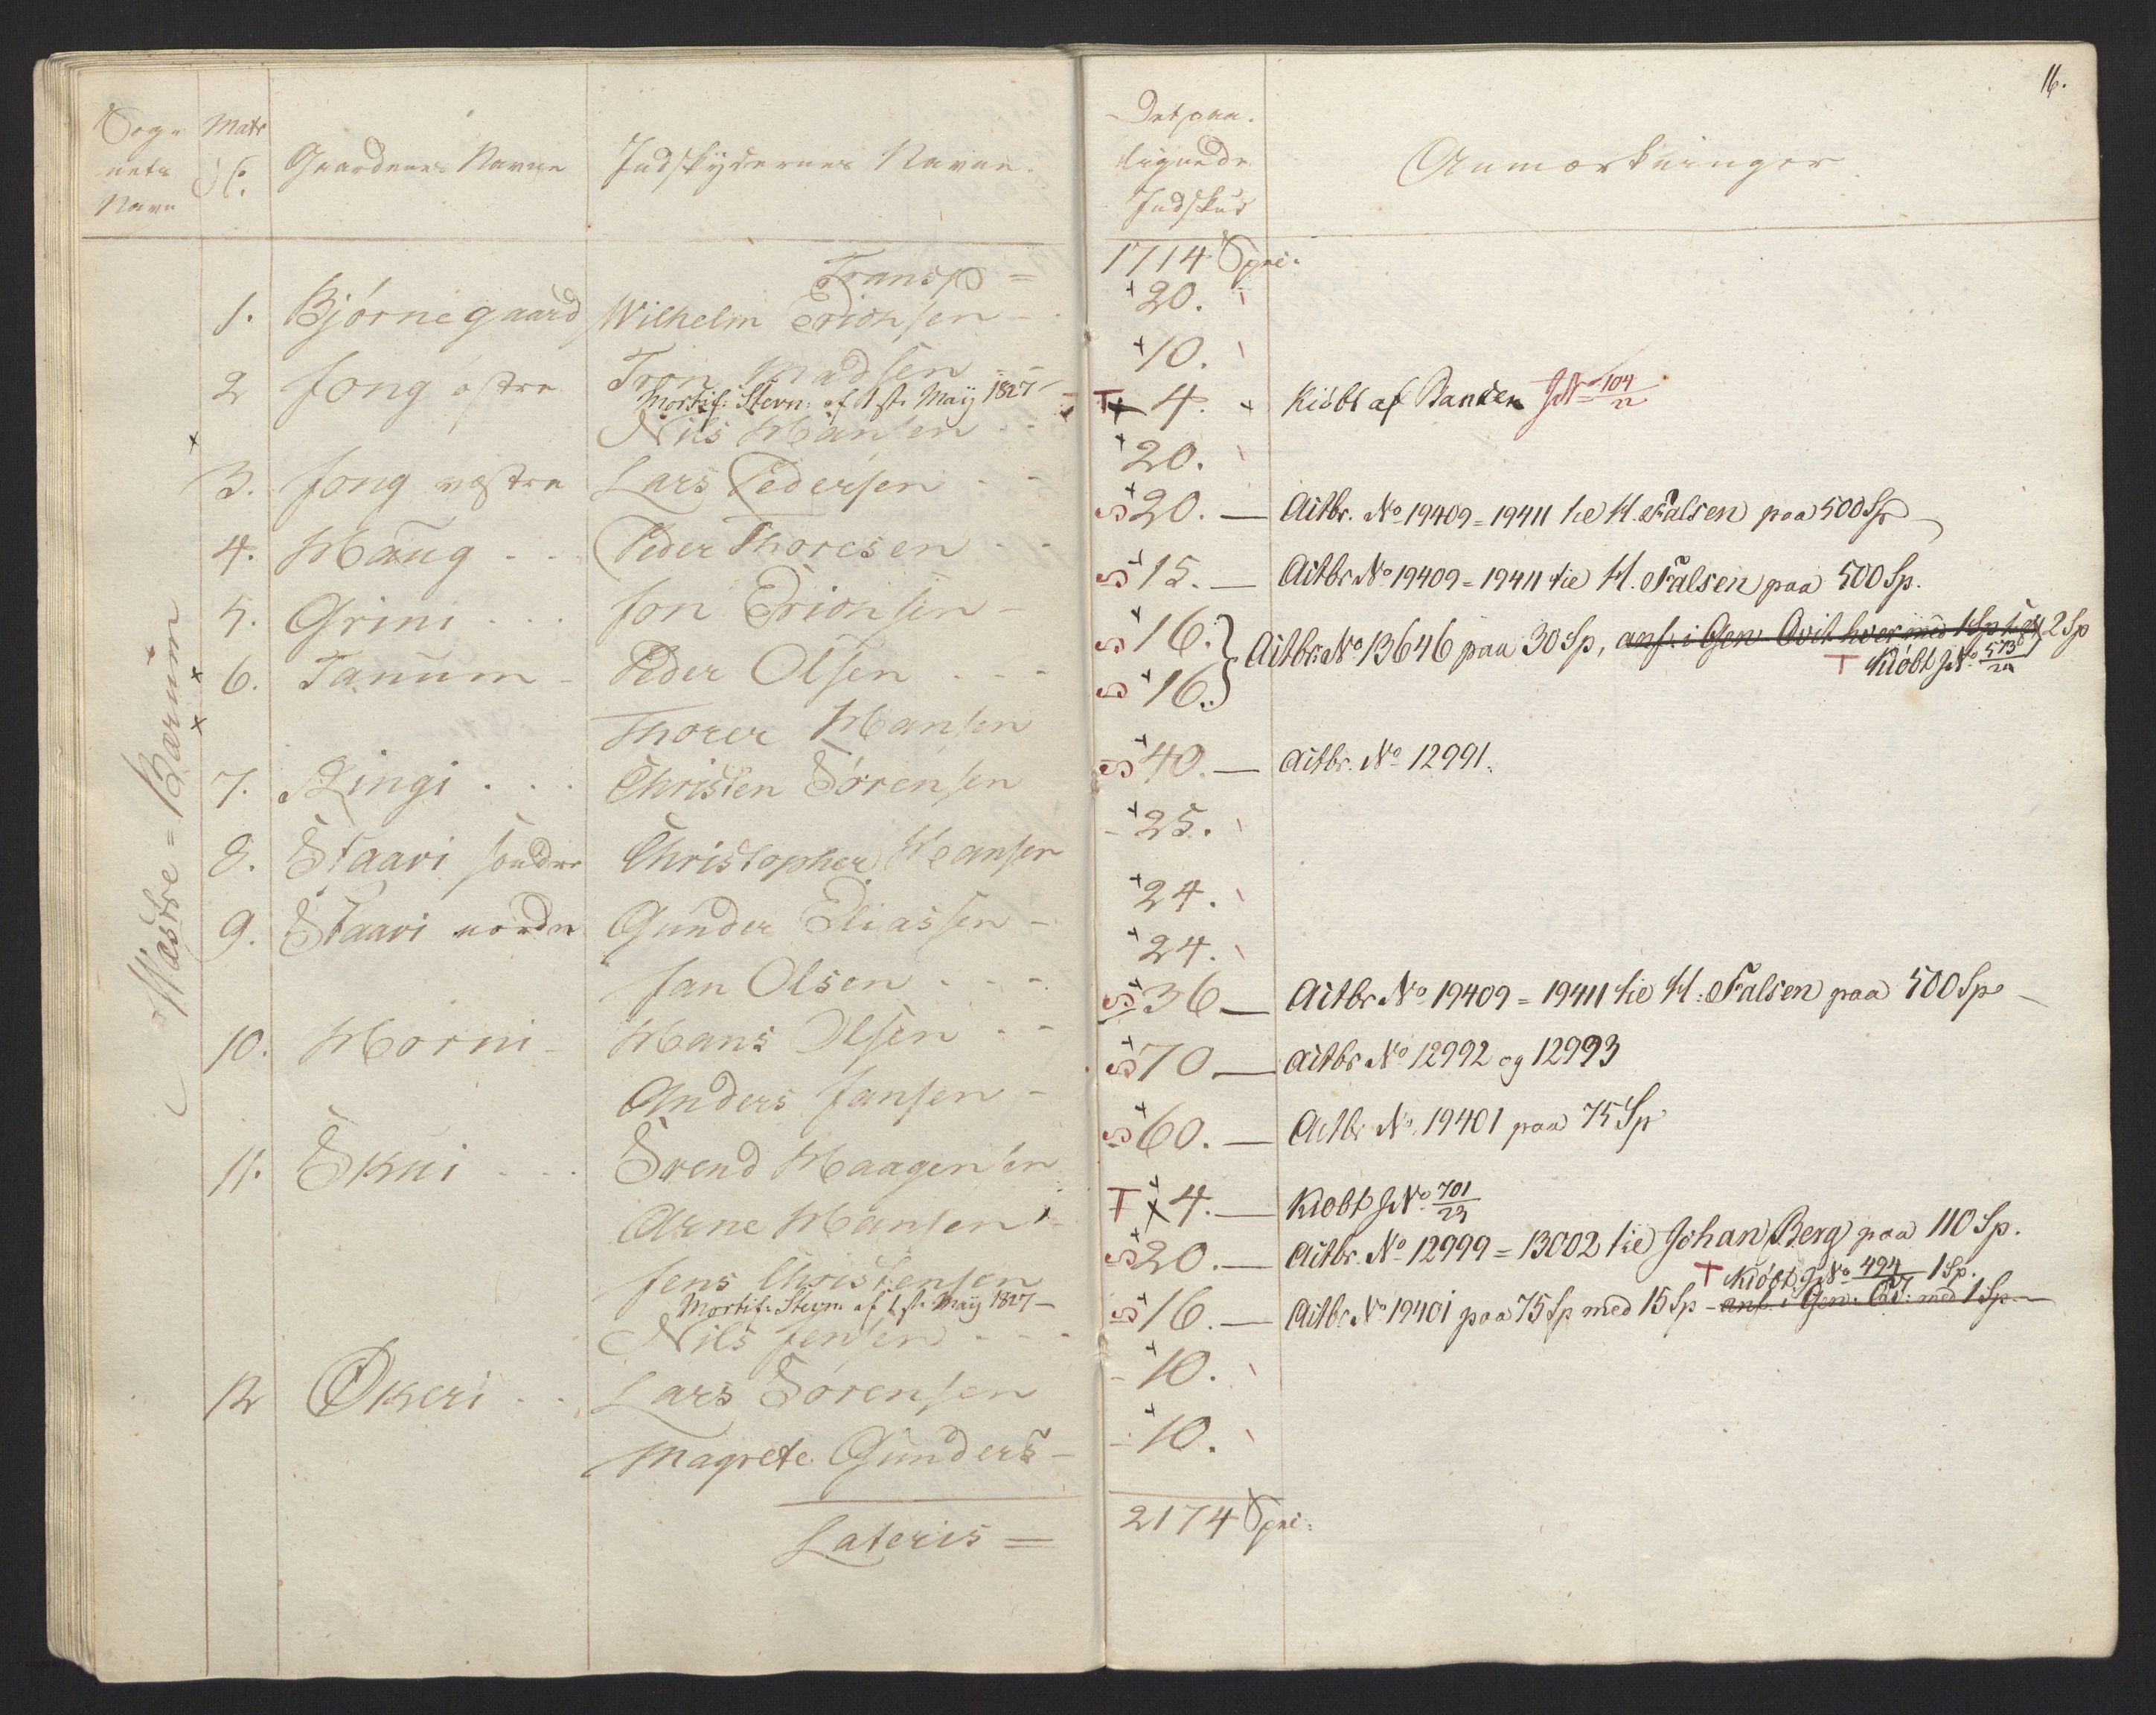 16.
Sog- Matr Gaardenes Navne Indskydernes Navne. Det paa- Anmærkninger
nets No: lignede
Navn Indskud
Transp = 1714 Spec:
Westre = Bærum
1. Bjørnegaard Wilhelm Erichsen - 20.
2 Jong østre Tron Madsen - 10.
Mortif: Stevn: af 1ste May 1827 -
Nils Hansen - - T 4. Kiöbt af Banken J No 104/22
3. Jong vestre Lars Pedersen - - 20.
4. Haug - - Peder Thoresen - - S 20. — Actbr. No 19409 = 19411 til H. Falsen paa 500 Sp
5. Grini - - - Jon Erichsen - S 15. — Actbr No 19409 = 19411 til H. Falsen paa 500 Sp.
6. Tanum - Peder Olsen - - - S 16. } Actbr. No 13646 paa 30 Sp, 2 Sp
Thorer Hansen S 16. } T Kiöbt J No 573/24
7. Ringi - - - Christen Sørensen S 40. — Actbr. No 12991.
8. Staavi søndre Christopher Hansen 25.
9. Staavi nordre Gunder Eliassen - 24.
Jan Olsen - - - 24.
10. Horni - Hans Olsen - - S 36 — Actbr No 19409 = 19411 til H: Falsen paa 500 Sp -
Anders Jansen - S 70 — Actbr No 12992 og 12993
11. Skui - - - Svend Haagensen S 60. — Actbr No. 19401 paa 75 Sp
Arne Hansen - T 4. — Kiöbt J No. 701/23
Jens Christensen S 20. — Actbr. No 12999 = 13002 til Johan Berg paa 110 Sp.
Mortif: Stevn: af 1ste May 1827 - T Kiöbt J No 494/27 1 Sp.
Nils Jensen - - - S 16. — Actbr. No 19401 paa 75 Sp med 15 Sp - ansf. i Gen: Qvit: med 1 Sp -
12 Økeri - - Lars Sørensen 10.
Magrete Gunders - 10.
Lateris = 2174 Spec: